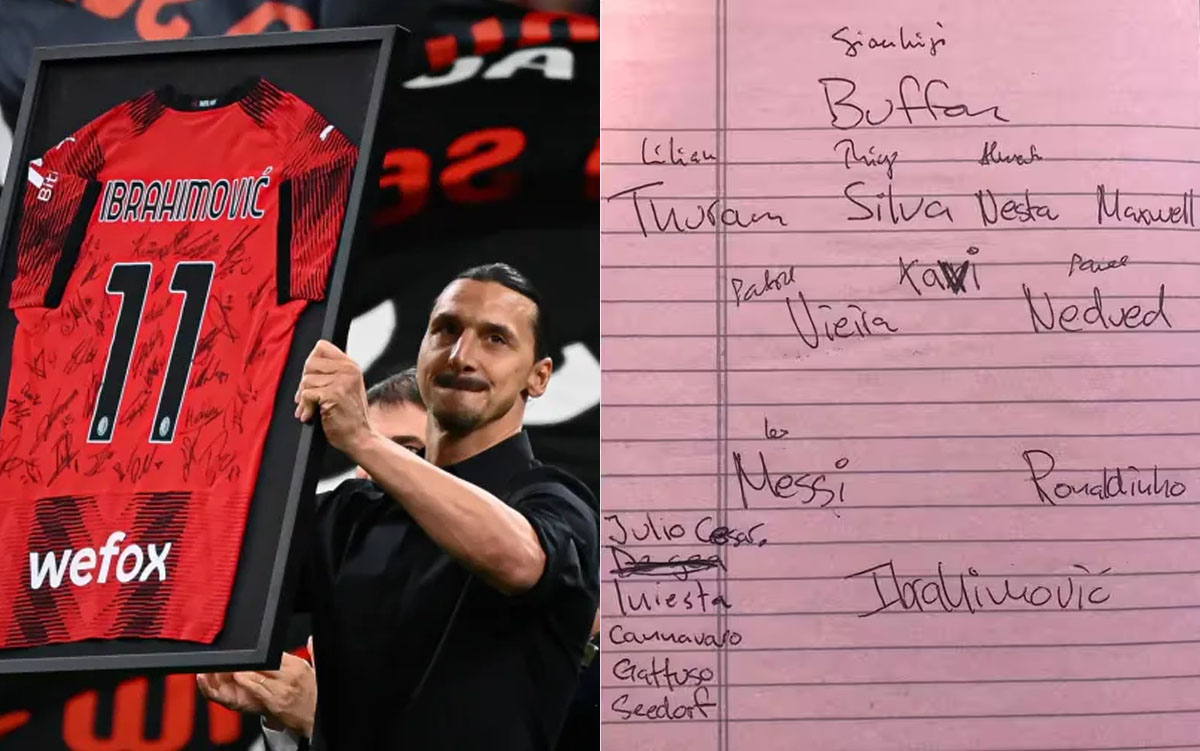 IBRAHIMOVIĆ
11
Biti
wefox
Gianluigi
Buffon
Lilian Thiago
Thuram Silva Nesta Maxwell
Patrick Xavi Pavel
Vieira Nedved
Leo
Messi Ronaldinho
Julio Cesar.
De gea
Iniesta Ibrahimović
Cannavaro
Gattuso
Seedorf